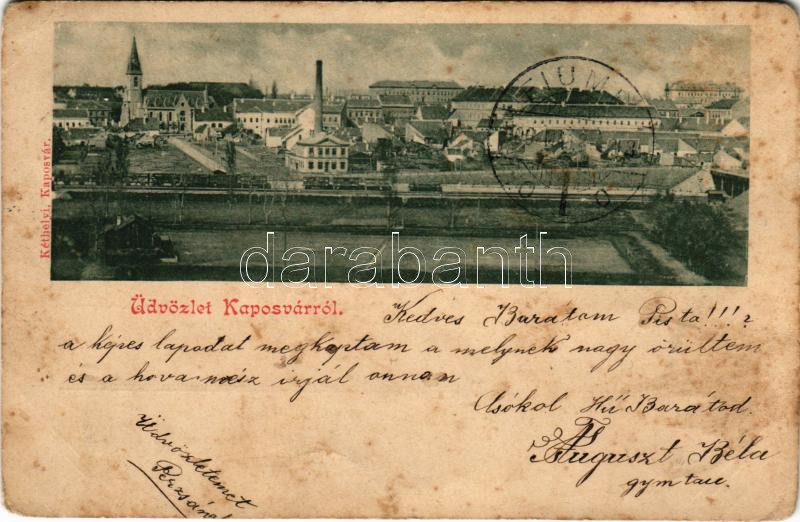 FIUME
Kéthelyi, Kaposvár.
darabanth
Üdvözlet Kaposvárról.
Kedves Baratom Pista!!!?
a képes lapodat megkaptam a melynek nagy örültem
és a hova mész irjál onnan
Csókol Hű Barátod.
Auguszt Béla
gym tau.
Üdvözletemet